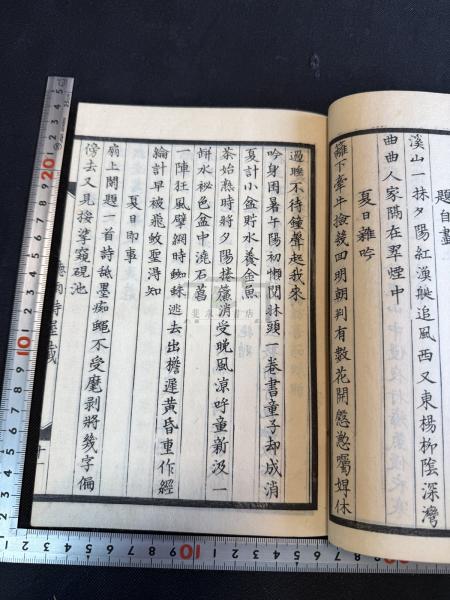 題自畫
溪山一抹夕陽紅漁艇追風西又東楊柳陰深灣
曲曲人家隔在翠煙中
夏日雜吟
籬下牽牛撿幾回明朝判有數花開慇懃囑婢休
過晚不待鐘聲起我來
吟身困暑午陽初懶閱牀頭一卷書童子却成消
夏計小盆貯水養金魚
茶始熟時將夕陽捲簾消受晚風涼呼童新汲一
缾水秘色盆中澆石菖
一陣狂風擘網時蜘蛛逃去出檐遲黃昏重作經
綸計早被飛蚊聖得知
夏日即事
扇上閑題一首詩誰墨痴蠅不受麾剥將幾字偏
傍去又見挼挲窺硯池
十一